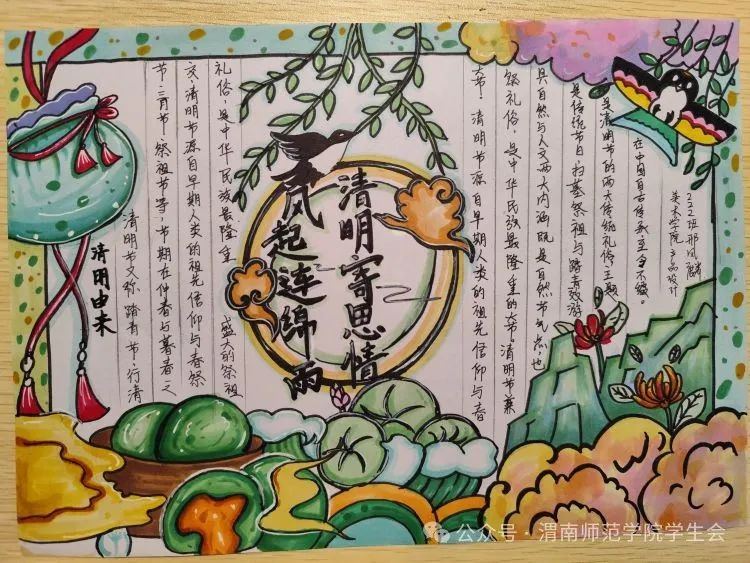 清明由来
清明节又称踏青节、行清
节、三月节、祭祖节等,节期在仲春与暮春之
交,清明节源自早期人类的祖先信仰与春祭
礼俗,是中华民族最隆重 盛大的祭祖
风起连绵雨
清明寄思情
大节。清明节源自早期人类的祖先信仰与春
祭礼俗,是中华民族最隆重的大节。清明节兼
具自然与人文两大内涵既是自然节气点,也
是传统节日扫墓祭祖与踏青郊游
是清明节的两大传统礼俗主题
在中国自古传承至今不辍。
美术学院产品设计
222班邢凤
公众号·渭南师范学院学生会